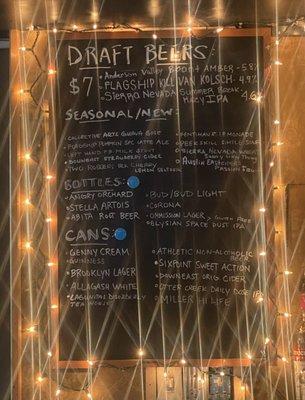 DRAFT BEERS:
$7
Anderson Valley Boont Amber - 5.8%
Flagship Kill Van Kolsch - 4.9%
Sierra Nevada Summer Break
Hazy IPA 4.6
SEASONAL/NEW:
Collective Arts Guava Gose
Flagship Pumpkin Spc Latte Ale
Left Hand PB Milk Stout
Downeast Strawberry Cider
Two Robbers Blk Cherry
Lemon Seltzer
Lemonade
Sierra Nevada
Austin Eastciders
Passion
BOTTLES:
Angry Orchard
Stella Artois
Abita Root Beer
Bud/Bud Light
Corona
Omission Lager, Gluten Free
Elysian Space Dust IPA
CANS:
Genny Cream
Guinness
Brooklyn Lager
Allagash White
Lagunitas Disorderly
Tea House
Athletic Non-Alcoholic
Beer
Sixpoint Sweet Action
Downeast Orig. Cider
Otter Creek Daily Dose IPA
Miller Hi Life